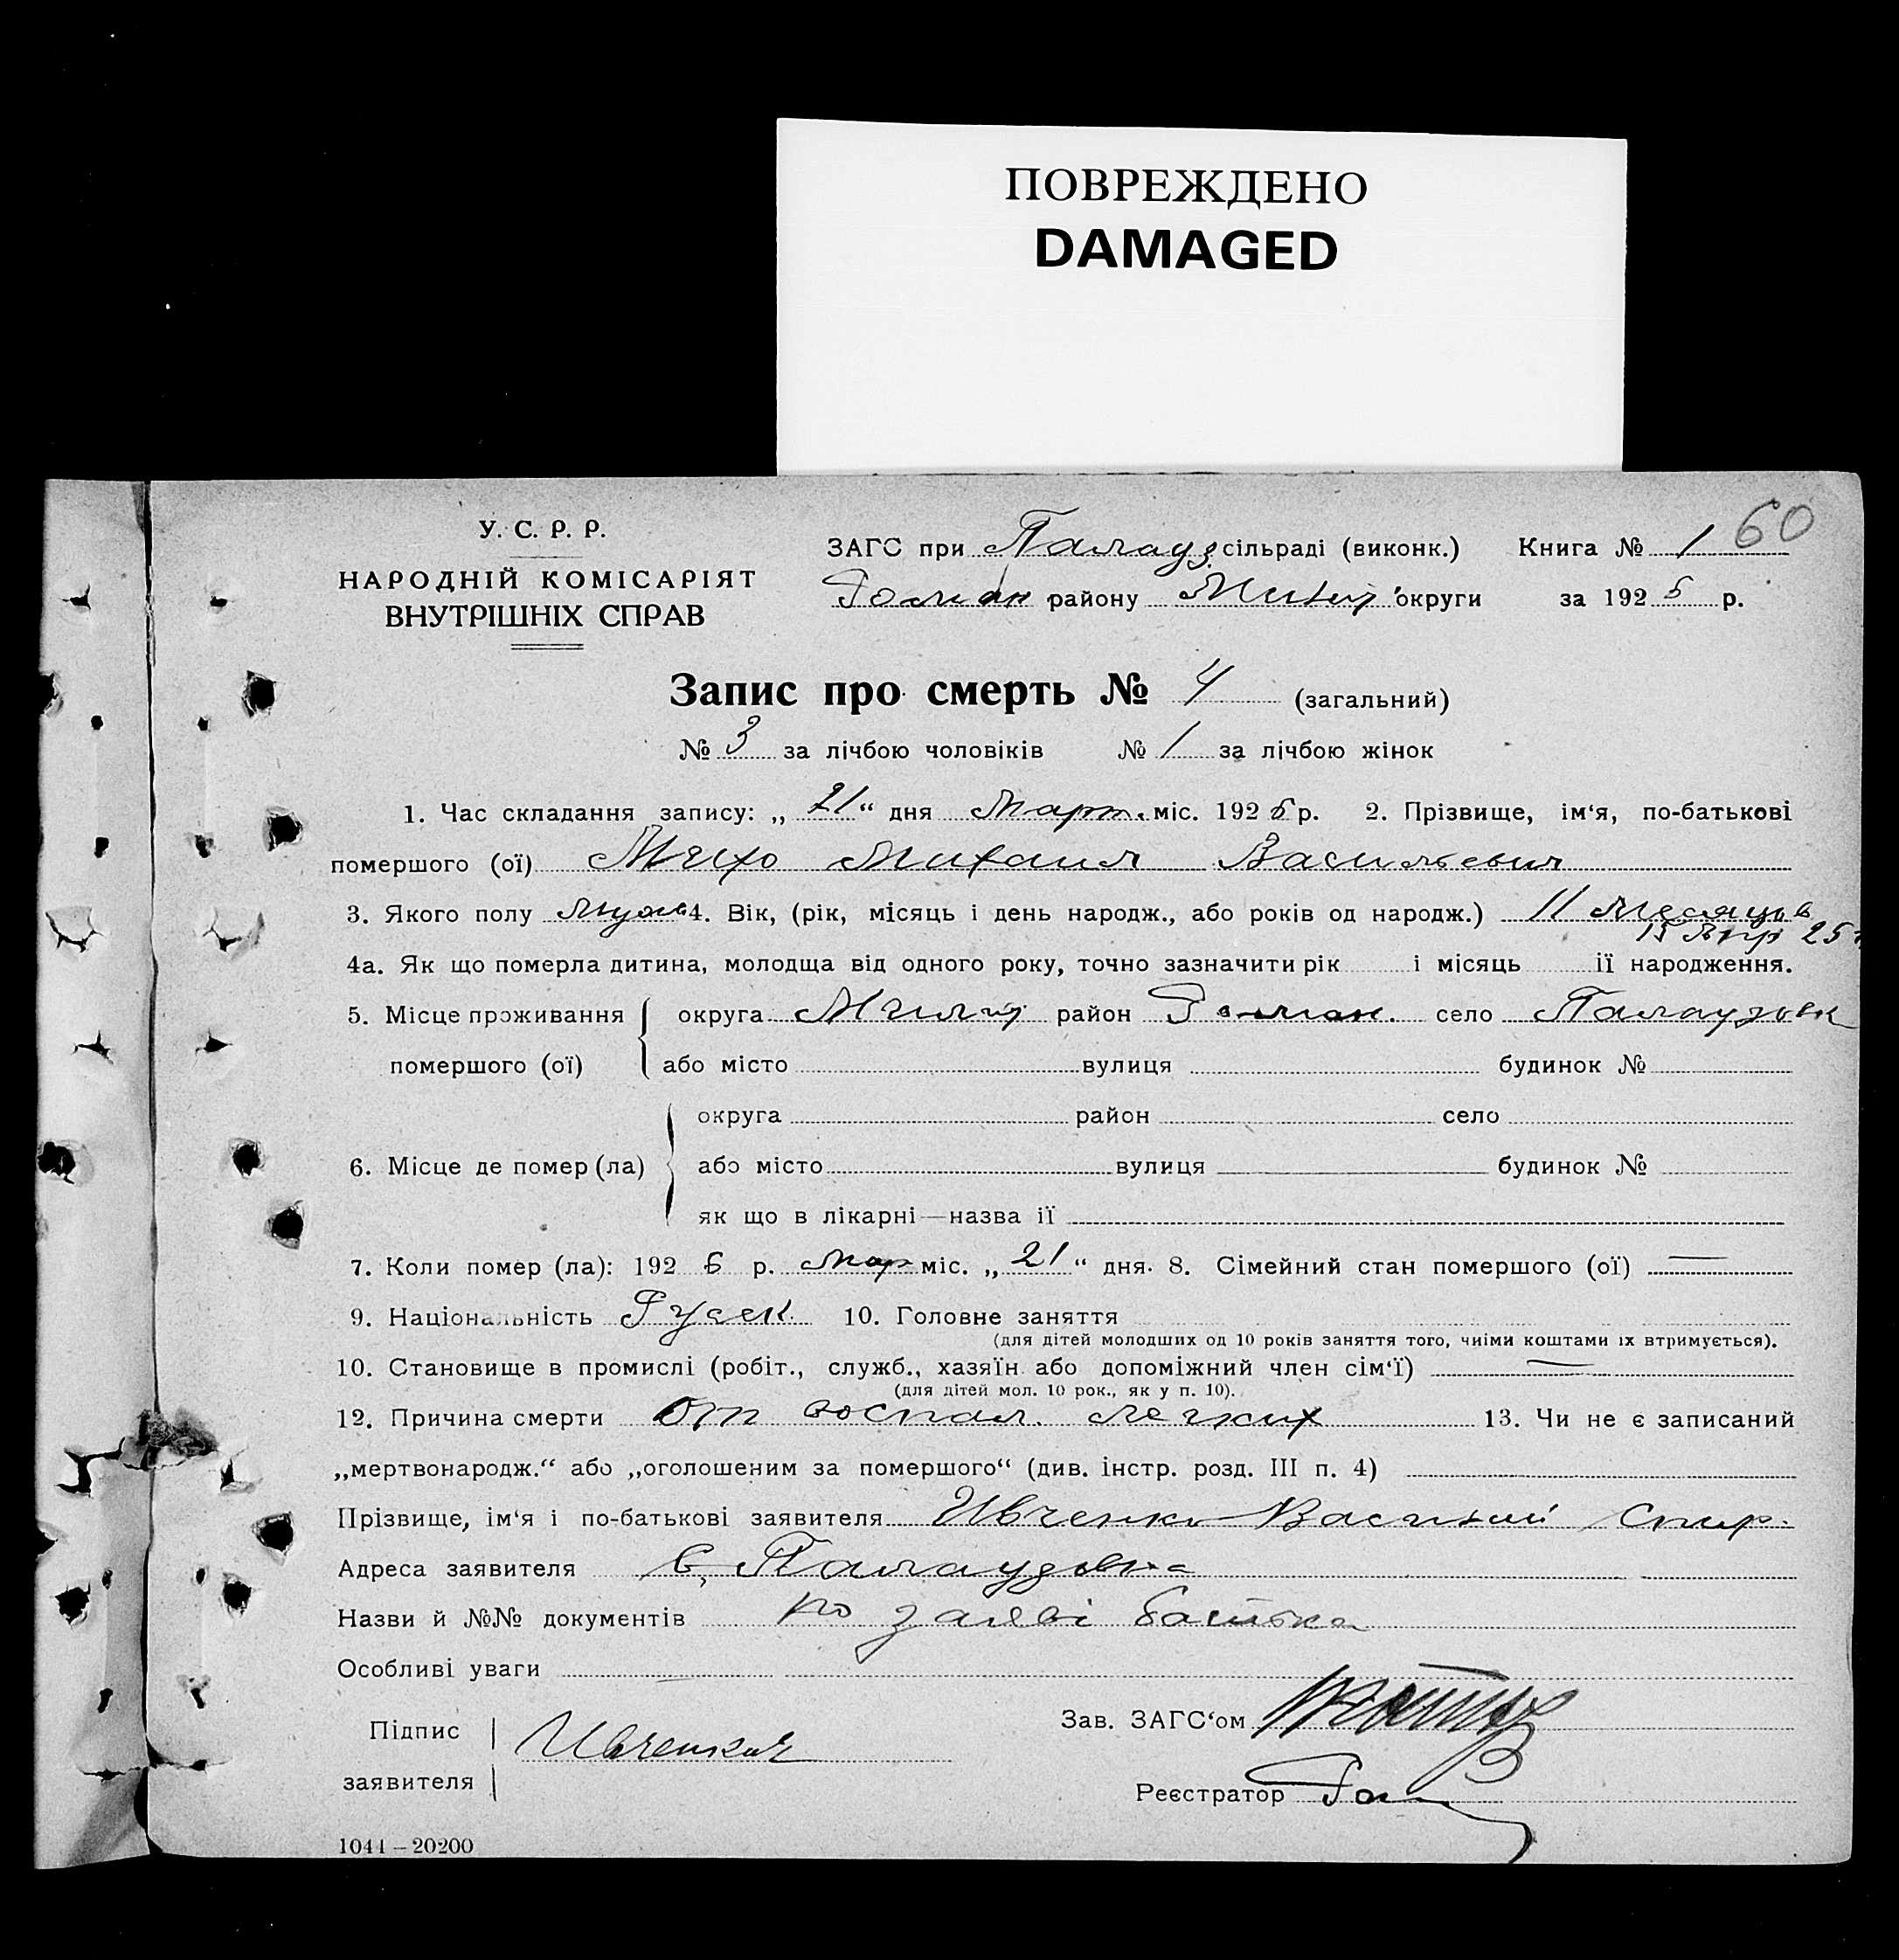 ПОВРЕЖДЕНО
DAMAGED
У. С. Р. Р.
НАРОДНІЙ КОМІСАРІЯТ
ВНУТРІШНІХ СПРАВ
ЗАГС при Палауз. сільраді (виконк.) Книга № 1 60
району округи за 192 р.
Запис про смерть № 4 (загальний)
№ 3 за лічбою чоловіків № 1 за лічбою жінок
1. Час складання запису: „ 21 “ дня Март. міс. 192 6 р. 2. Прізвище, ім‘я, по-батькові
помершого (ої) Михаил Васильевич
3. Якого полу Мужс 4. Вік, (рік, місяць і день народж., або років од народж.) 11 Месяцов
15 Апр 25
4а. Як що померла дитина, молодща від одного року, точно зазначити рік і місяць її народження.
5. Місце проживання округа район село Палаузовк
помершого (ої) або місто вулиця будинок №
округа район село
6. Місце де помер (ла) або місто вулиця будинок №
як що в лікарні—назва її
7. Коли помер (ла): 192 6 р. Мар міс. „ 21 “ дня. 8. Сімейний стан помершого (ої) —
9. Національність Руск. 10. Головне заняття
(для дітей молодших од 10 років заняття того, чиїми коштами їх втримується).
10. Становище в промислі (робіт., служб., хазяїн або допоміжний член сім‘ї) —
(для дітей мол. 10 рок., як у п. 10).
12. Причина смерти От воспал. легких 13. Чи не є записаний
„мертвонародж.“ або „оголошеним за помершого“ (див. інстр. розд. III п. 4)
Прізвище, ім‘я і по-батькові заявителя Ивченко Василий Спир.
Адреса заявителя с. Палаузовка
Назви й №№ документів по заяві батька
Особливі уваги
Підпис
заявителя
Зав. ЗАГС‘ом
Реєстратор
1044–20200